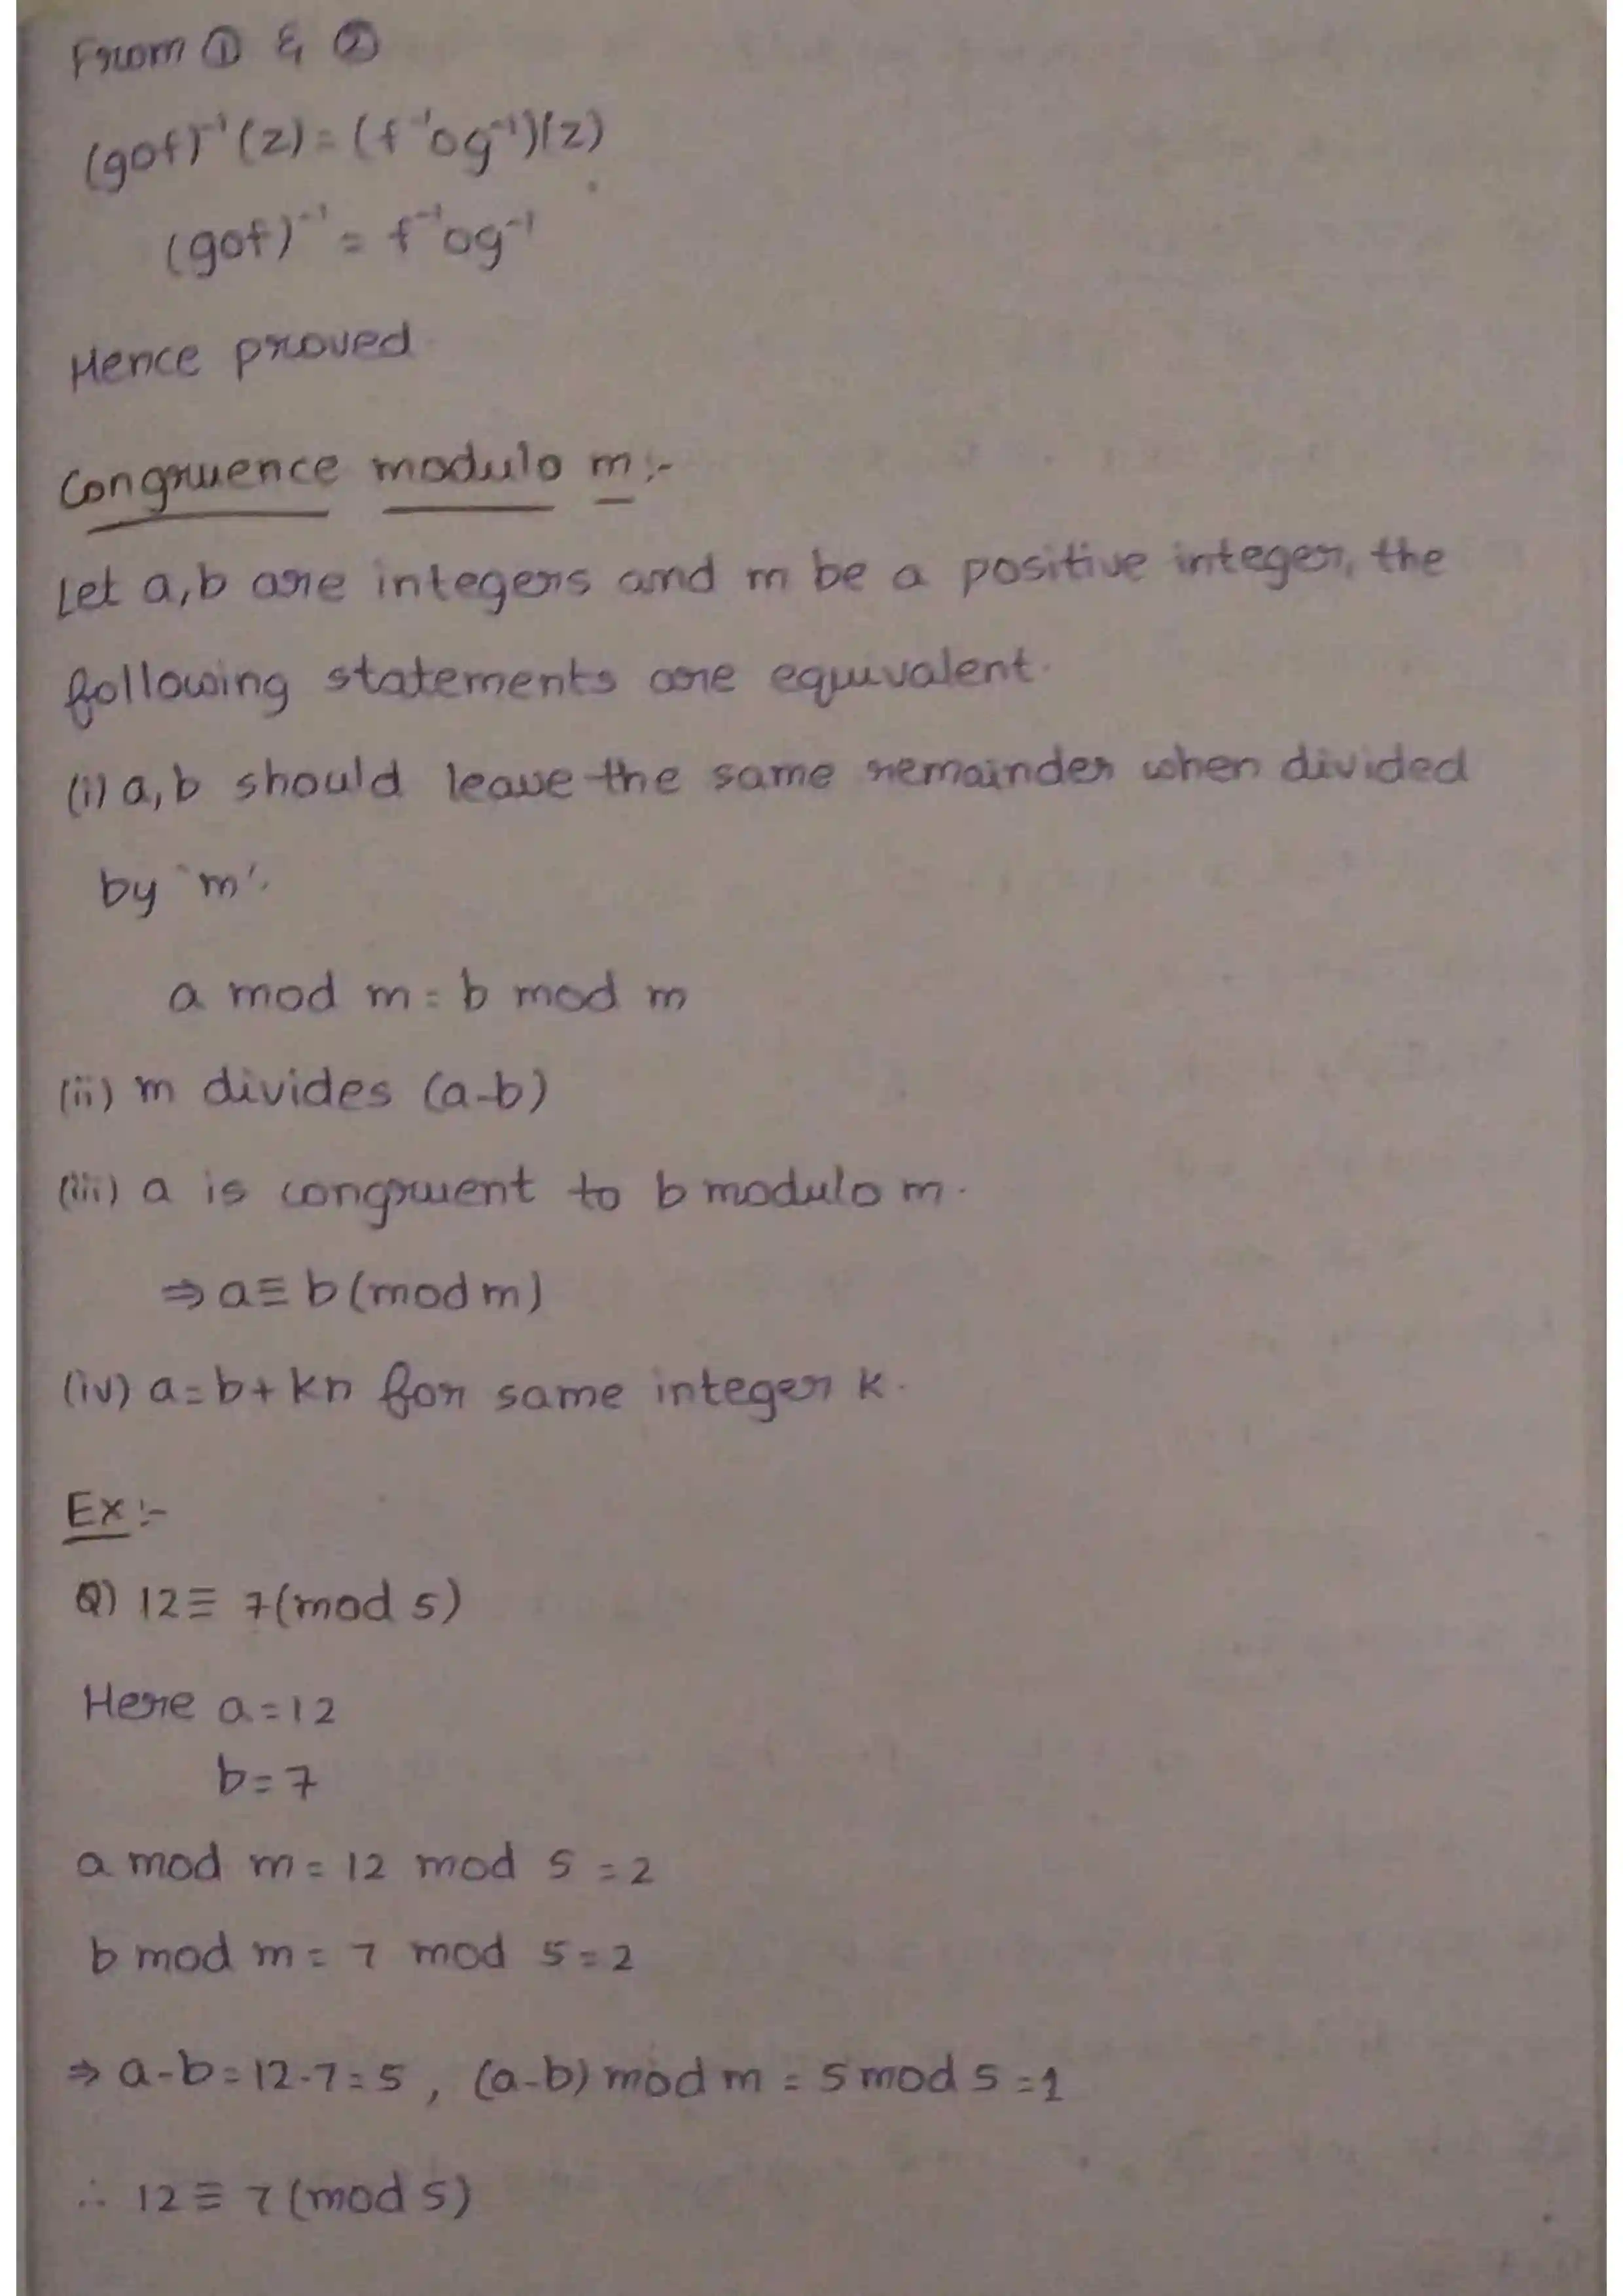 From ① & ②
(gof)⁻¹(z) = (f⁻¹og⁻¹)(z)
(gof)⁻¹ = f⁻¹og⁻¹
Hence proved
Congruence modulo m:-
Let a,b are integers and m be a positive integer, the
following statements are equivalent.
(i) a,b should leave the same remainder when divided
by 'm'.
a mod m = b mod m
(ii) m divides (a-b)
(iii) a is congruent to b modulo m.
⇒ a ≡ b (mod m)
(iv) a = b + kn for same integer k.
Ex:-
Q) 12 ≡ 7 (mod 5)
Here a = 12
b = 7
a mod m = 12 mod 5 = 2
b mod m = 7 mod 5 = 2
⇒ a-b = 12-7 = 5, (a-b) mod m = 5 mod 5 = 1
∴ 12 ≡ 7 (mod 5)